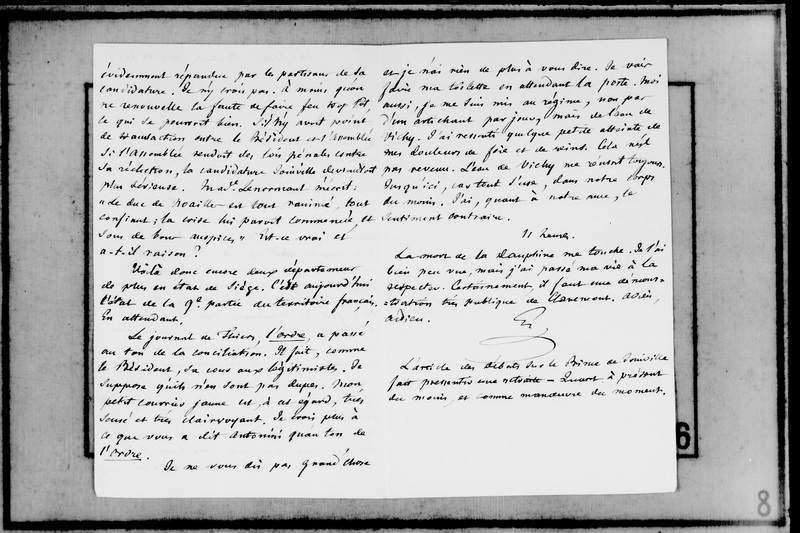 évidemment répandue par les partisans de sa
candidature. Je n'y crois pas. à moins qu'on
ne renouvelle la faute de faire feu trop tôt,
ce qui se pourroit bien. S'il n'y avoit point
de transaction entre le Président et l'assemblée
si l'Assemblée rendoit des lois pénales contre
sa réélection, la candidature Joinville deviendroit
plus sérieuse. Mad. Lenormant m'écrit :
"le duc de Noailles est tout ranimé, tout
confiant ; la crise lui paroit commencée, et
sous de bons auspices." Est-ce vrai et
a-t-il raison ?
Voilà donc encore deux départements
de plus en état de siège. C'est aujourd'hui
l'état de la 9e partie du territoire français.
En attendant.
Le journal de Thiers, l'ordre, a passé
au ton de la conciliation. Il fait, comme
le Président, sa cour aux légitimistes. Je
suppose qu'ils n'en sont pas dupes. Mon
petit courrier jaune est, à cet égard, très
sensé et très clairvoyant. Je crois plus à
ce que vous a dit Antonini qu'au ton de
l'ordre.
Je ne vous dis pas grand'chose
et je n'ai rien de plus à vous dire. Je vais
faire ma toilette en attendant la poste. Moi
aussi, je me suis mis au régime, non pas
d'un artichaut par jour, mais de l'eau de
Vichy. J'ai ressenti quelque petite atteinte de
mes douleurs de foie et de reins. Cela n'est
pas revenu. L'eau de Vichy me réussit toujours.
Jusqu'ici, car tout s'use, dans notre corps
du moins. J'ai, quant à notre ame, le
sentiment contraire.
11 heures.
La mort de la Dauphine me touche. Je l'ai
bien peu vue, mais j'ai passé ma vie à la
respecter. Certainement, il faut une démons-
-tration très publique de Claremont. adieu,
adieu.
G
L'article des débats sur le Prince de Joinville
fait pressentir une retraite - Quant à présent
du moins, et comme manœuvre du moment.
6
8